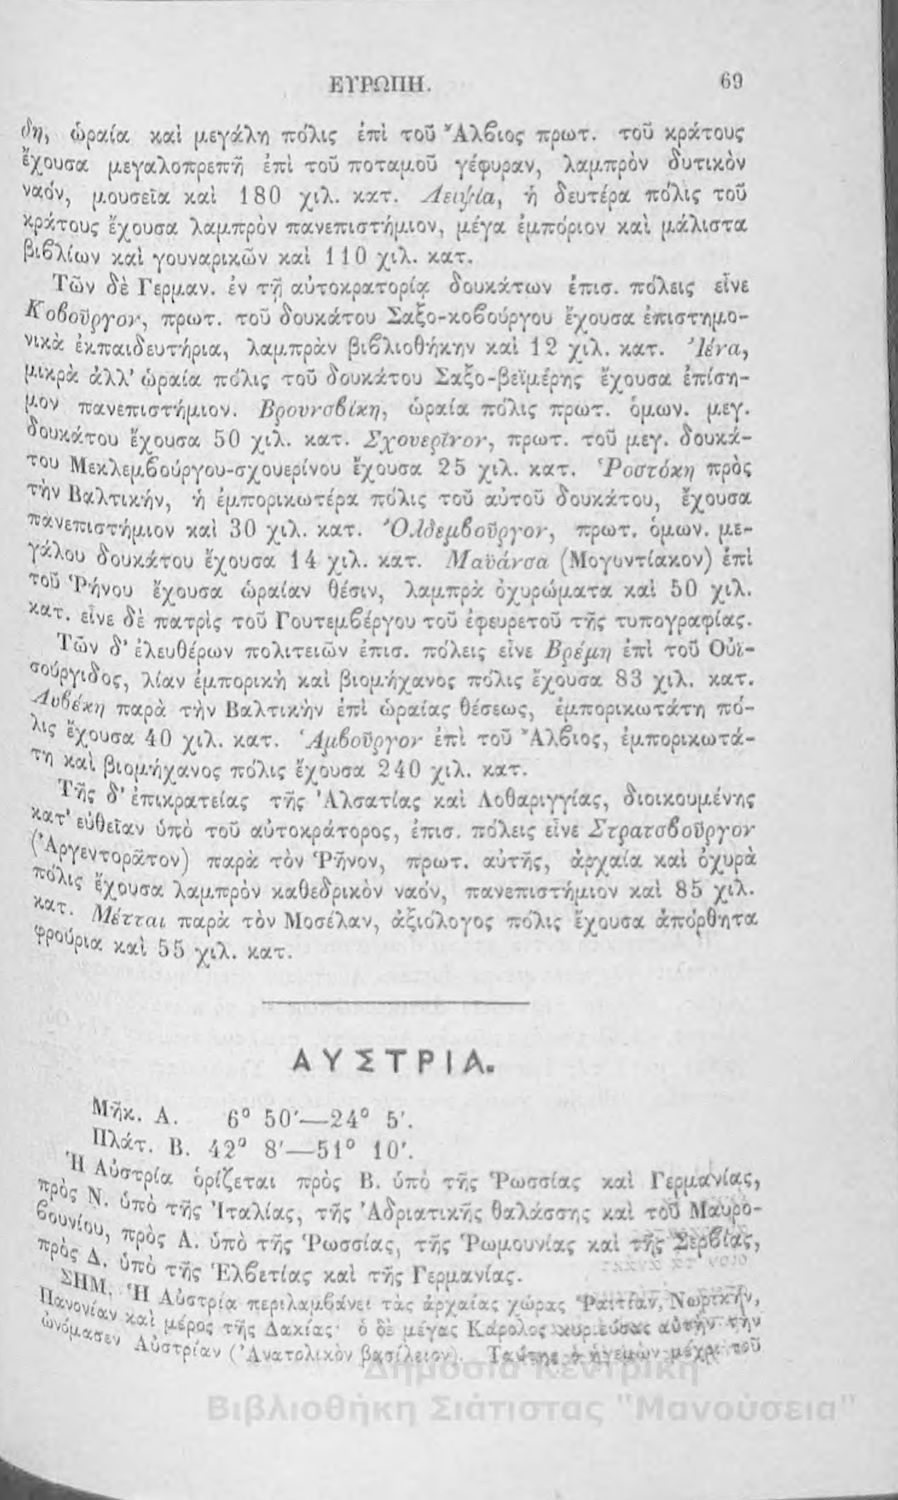 ΕΥΡΩΠΗ. 69
δη, ὡραία καὶ μεγάλη πόλις ἐπὶ τοῦ Ἄλβιος πρωτ. τοῦ κράτους
ἔχουσα μεγαλοπρεπῆ ἐπὶ τοῦ ποταμοῦ γέφυραν, λαμπρὸν δυτικὸν
ναόν, μουσεῖα καὶ 180 χιλ. κατ. Λειψία, ἡ δευτέρα πόλις τοῦ
κράτους ἔχουσα λαμπρὸν πανεπιστήμιον, μέγα ἐμπόριον καὶ μάλιστα
βιβλίων καὶ γουναρικῶν καὶ 110 χιλ. κατ.
Τῶν δὲ Γερμαν. ἐν τῇ αὐτοκρατορίᾳ δουκάτων ἐπισ. πόλεις εἶνε
Κοβοῦργον, πρωτ. τοῦ δουκάτου Σαξο-κοβούργου ἔχουσα ἐπιστημο-
νικὰ ἐκπαιδευτήρια, λαμπρὰν βιβλιοθήκην καὶ 12 χιλ. κατ. Ἰένα,
μικρὰ ἀλλ' ὡραία πόλις τοῦ δουκάτου Σαξο-βεϊμέρης ἔχουσα ἐπίση-
μον πανεπιστήμιον. Βρουνσβίκη, ὡραία πόλις πρωτ. ὁμων. μεγ.
δουκάτου ἔχουσα 50 χιλ. κατ. Σχουερῖνον, πρωτ. τοῦ μεγ. δουκά-
του Μεκλεμβούργου-σχουερίνου ἔχουσα 25 χιλ. κατ. Ῥοστόκη πρὸς
τὴν Βαλτικήν, ἡ ἐμπορικωτέρα πόλις τοῦ αὐτοῦ δουκάτου, ἔχουσα
πανεπιστήμιον καὶ 30 χιλ. κατ. Ὀλδεμβοῦργον, πρωτ. ὁμων. με-
γάλου δουκάτου ἔχουσα 14 χιλ. κατ. Μαϋάνσα (Μογυντίακον) ἐπὶ
τοῦ Ῥήνου ἔχουσα ὡραίαν θέσιν, λαμπρὰ ὀχυρώματα καὶ 50 χιλ.
κατ. εἶνε δὲ πατρὶς τοῦ Γουτεμβέργου τοῦ ἐφευρετοῦ τῆς τυπογραφίας.
Τῶν δ' ἐλευθέρων πολιτειῶν ἐπισ. πόλεις εἶνε Βρέμη ἐπὶ τοῦ Οὐϊ-
σούργιδος, λίαν ἐμπορικὴ καὶ βιομήχανος πόλις ἔχουσα 83 χιλ. κατ.
Λυβέκη παρὰ τὴν Βαλτικὴν ἐπὶ ὡραίας θέσεως, ἐμπορικωτάτη πό-
λις ἔχουσα 40 χιλ. κατ. Ἁμβοῦργον ἐπὶ τοῦ Ἄλβιος, ἐμπορικωτά-
τη καὶ βιομήχανος πόλις ἔχουσα 240 χιλ. κατ.
Τῆς δ' ἐπικρατείας τῆς Ἀλσατίας καὶ Λοθαριγγίας, διοικουμένης
κατ' εὐθεῖαν ὑπὸ τοῦ αὐτοκράτορος, ἐπισ. πόλεις εἶνε Στρατσβοῦργον
(Ἀργεντορᾶτον) παρὰ τὸν Ῥῆνον, πρωτ. αὐτῆς, ἀρχαία καὶ ὀχυρὰ
πόλις ἔχουσα λαμπρὸν καθεδρικὸν ναόν, πανεπιστήμιον καὶ 85 χιλ.
κατ. Μέτται παρὰ τὸν Μοσέλαν, ἀξιόλογος πόλις ἔχουσα ἀπόρθητα
φρούρια καὶ 55 χιλ. κατ.
ΑΥΣΤΡΙΑ.
Μῆκ. Α. 6° 50'—24° 5'.
Πλάτ. Β. 42° 8'—51° 10'.
Ἡ Αὐστρία ὁρίζεται πρὸς Β. ὑπὸ τῆς Ῥωσσίας καὶ Γερμανίας,
πρὸς Ν. ὑπὸ τῆς Ἰταλίας, τῆς Ἀδριατικῆς θαλάσσης καὶ τοῦ Μαυρο-
βουνίου, πρὸς Α. ὑπὸ τῆς Ῥωσσίας, τῆς Ῥωμουνίας καὶ τῆς Σερβίας,
πρὸς Δ. ὑπὸ τῆς Ἑλβετίας καὶ τῆς Γερμανίας.
ΣΗΜ. Ἡ Αὐστρία περιλαμβάνει τὰς ἀρχαίας χώρας Ῥαιτίαν, Νωρικήν,
Πανονίαν καὶ μέρος τῆς Δακίας· ὁ δὲ μέγας Κάρολος κυριεύσας αὐτὴν τὴν
ὠνόμασεν Αὐστρίαν (Ἀνατολικὸν βασίλειον). Ταύτης ὁ ἡγεμὼν μέχρι τοῦ
Δημόσια Κεντρική
Βιβλιοθήκη Σιάτιστας "Μανούσεια"